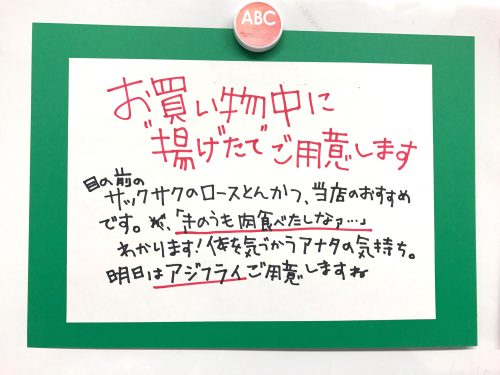 ABC
お買い物中に
"揚げたて"ご用意します
目の前の
サックサクのロースとんかつ、当店のおすすめ
です。が、「きのうも肉食べたしなァ…」
わかります!体を気づかうアナタの気持ち。
明日はアジフライご用意しますね